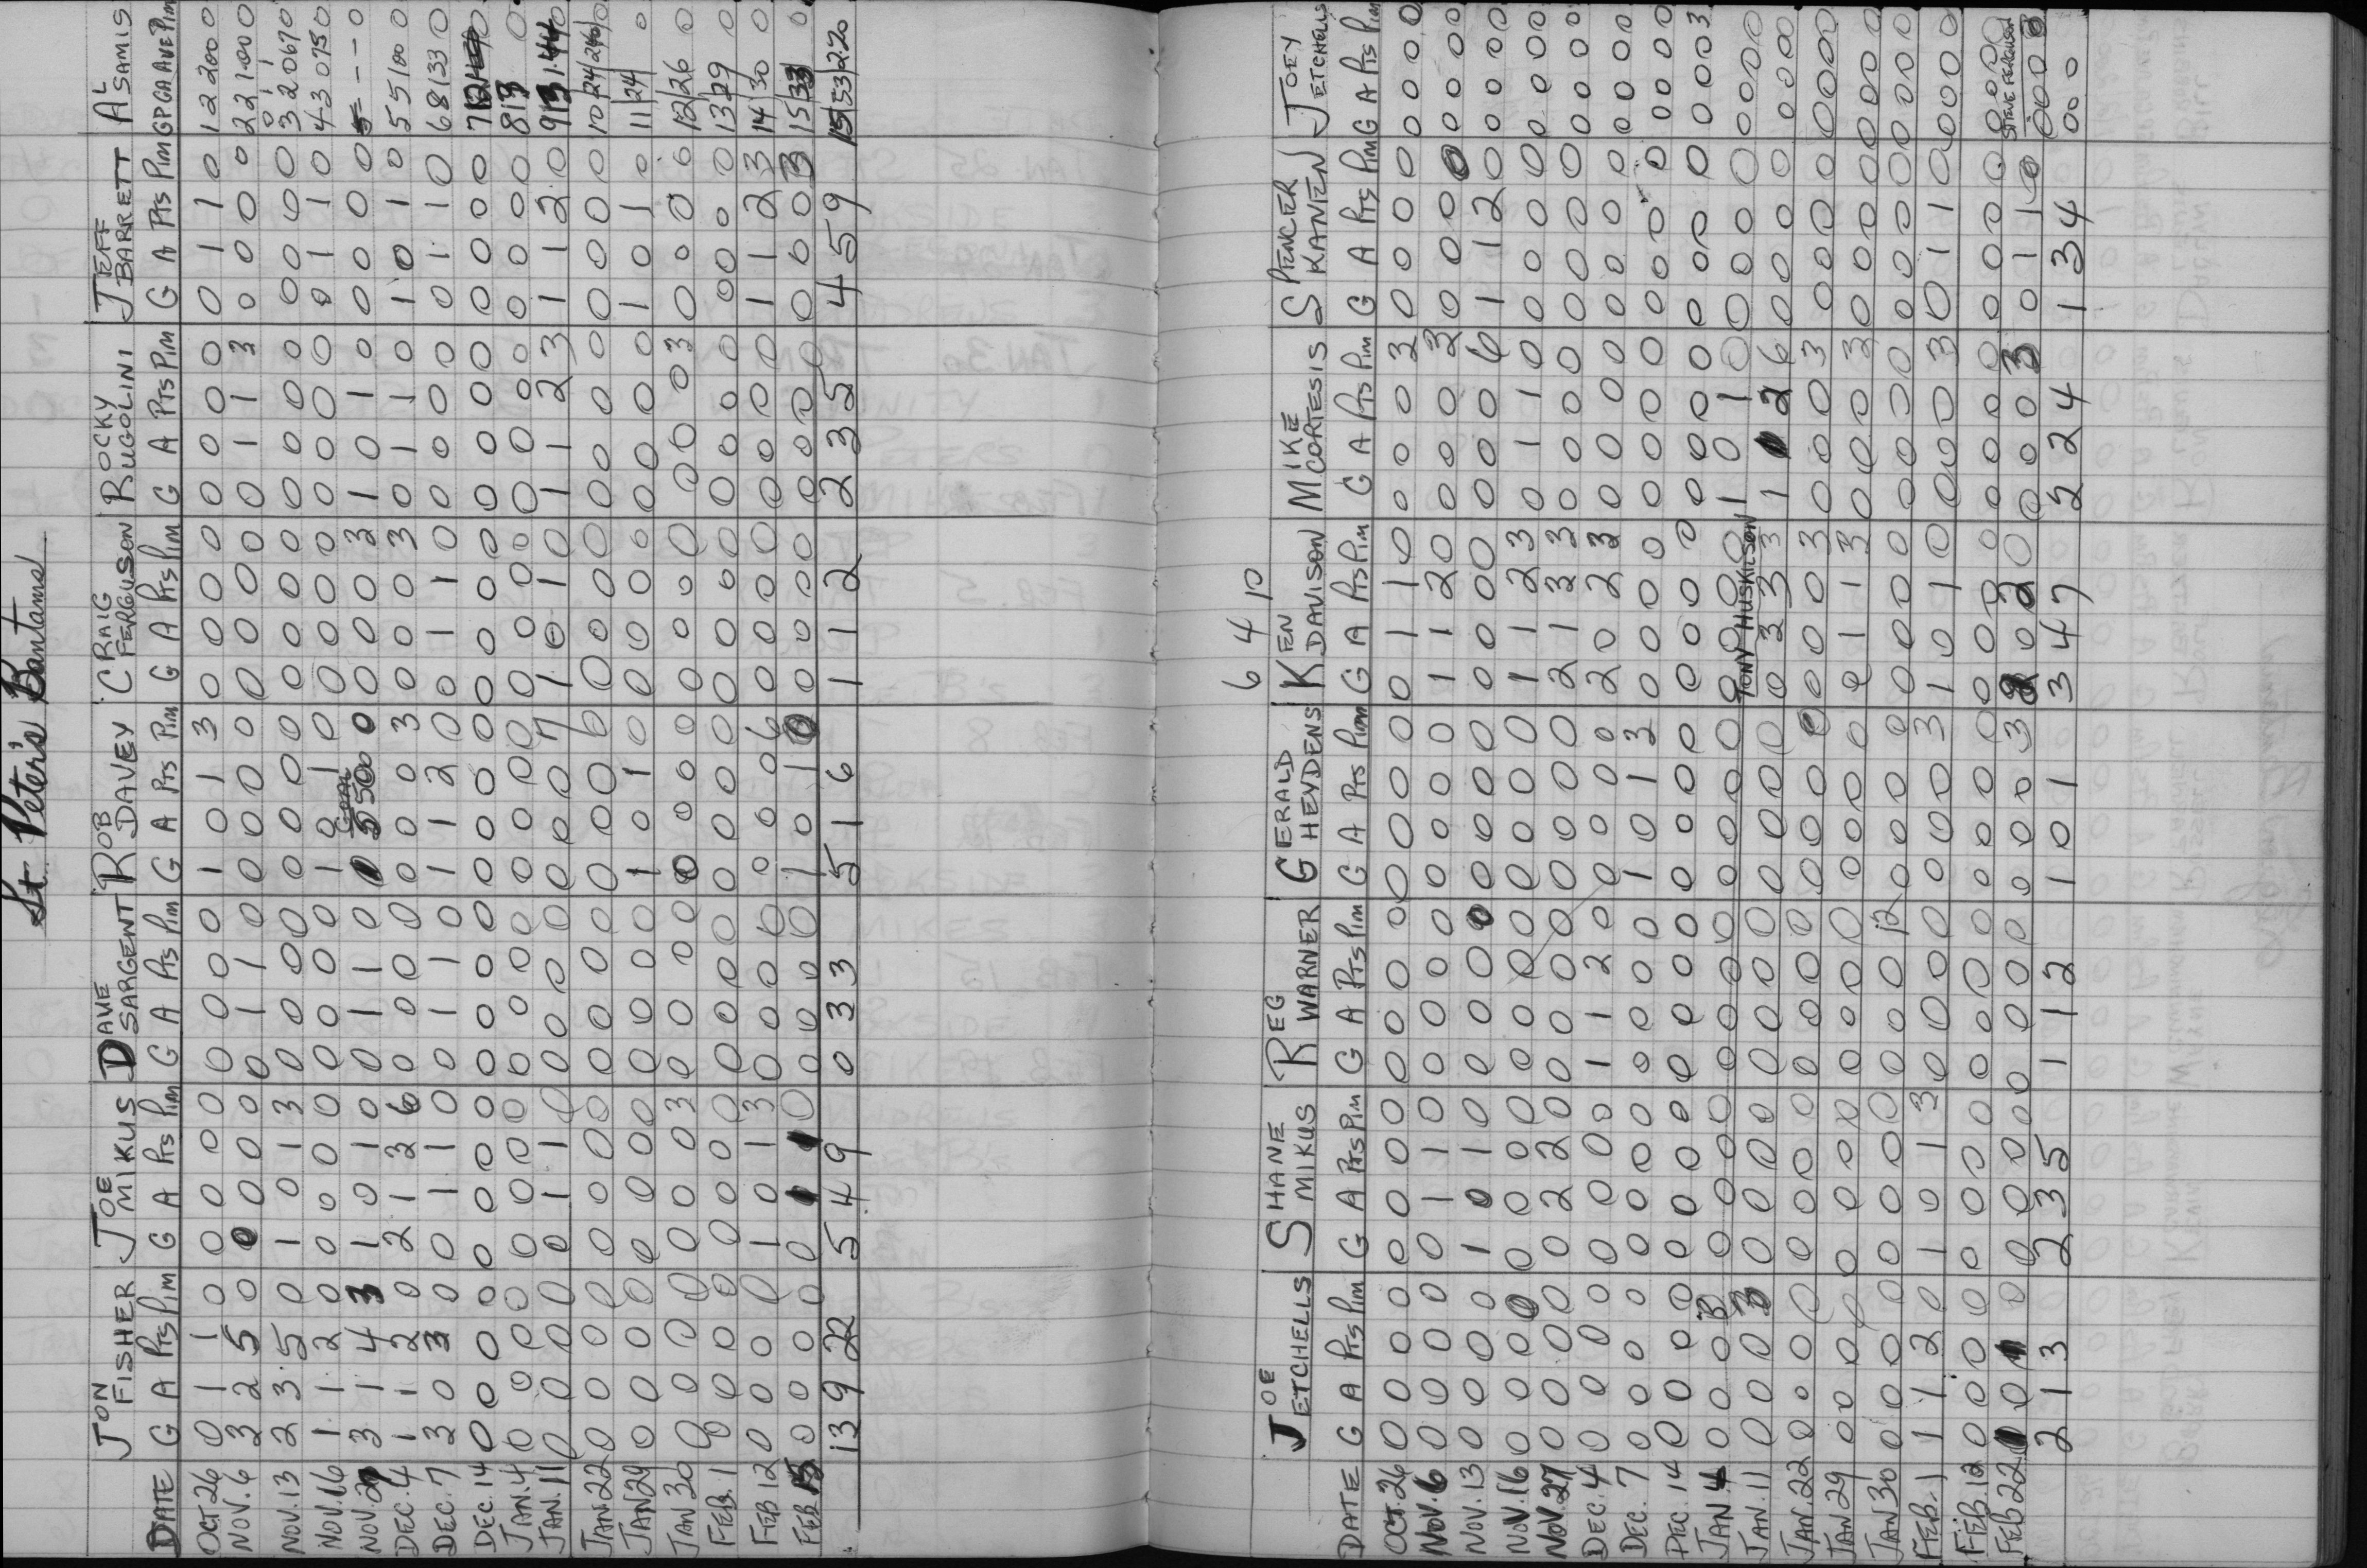 St. Peter's Bantams
JON FISHER JOE MIKUS DAVE SARGENT ROB DAVEY CRAIG FERGUSON ROCKY RUGOLINI JEFF BARRETT AL SAMIS
DATE G A Pts Pim G A Pts Pim G A Pts Pim G A Pts Pim G A Pts Pim G A Pts Pim G A Pts Pim GP GA AVE Pim
OCT 26 0 1 1 0 0 0 0 0 0 0 0 0 1 0 1 3 0 0 0 0 0 0 0 0 0 1 1 0 1 2 2.00 0
NOV. 6 3 2 5 0 0 0 0 0 0 1 1 0 0 0 0 0 0 0 0 0 0 1 1 3 0 0 0 0 2 2 1.00 0
NOV. 13 2 3 5 0 1 0 1 3 0 0 0 0 0 0 0 0 0 0 0 0 0 0 0 0 0 0 0 0 3 2 0.67 0
NOV. 16 1 1 2 0 0 0 0 0 0 0 0 0 1 0 1 0 0 0 0 0 0 0 0 0 0 1 1 0 4 3 0.75 0
NOV. 27 3 1 4 3 1 0 1 0 0 1 1 0 1 5 5.00 0 0 0 0 3 1 0 1 0 0 0 0 0 5 - - - 0
DEC. 4 1 1 2 0 2 1 3 6 0 0 0 0 0 0 0 3 0 0 0 3 0 1 1 0 1 0 1 0 5 5 1.00 0
DEC. 7 3 0 3 0 0 1 1 0 0 1 1 0 1 1 2 0 0 1 1 0 0 0 0 0 0 1 1 0 6 8 1.33 0
DEC. 14 0 0 0 0 0 0 0 0 0 0 0 0 0 0 0 0 0 0 0 0 0 0 0 0 0 0 0 0 7 12
JAN. 4 0 0 0 0 0 0 0 0 0 0 0 0 0 0 0 0 0 0 0 0 0 0 0 0 0 0 0 0 8 13 0
JAN. 11 0 0 0 0 0 1 1 0 0 0 0 0 0 0 0 7 1 0 1 0 1 1 2 3 1 1 2 0 9 13 1.44 0
JAN. 22 0 0 0 0 0 0 0 0 0 0 0 0 0 0 0 0 0 0 0 0 0 0 0 0 0 0 0 0 10 24 2.40 0
JAN 29 0 0 0 0 0 0 0 0 0 0 0 0 1 0 1 0 0 0 0 0 0 0 0 0 1 0 1 0 11 24 0
JAN 30 0 0 0 0 0 0 0 3 0 0 0 0 0 0 0 0 0 0 0 0 0 0 0 3 0 0 0 0 12 26 0
FEB. 1 0 0 0 0 0 0 0 0 0 0 0 0 0 0 0 0 0 0 0 0 0 0 0 0 0 0 0 0 13 29 0
FEB 12 0 0 0 0 1 0 1 3 0 0 0 0 0 0 0 6 0 0 0 0 0 0 0 0 1 1 2 3 14 30 0
FEB 15 0 0 0 0 0 1 1 0 0 0 0 0 1 0 1 0 0 0 0 0 0 0 0 0 0 0 0 3 15 33 0
13 9 22 5 4 9 0 3 3 5 1 6 1 1 2 2 3 5 4 5 9 15 33 2.20
6 4 10
JOE ETCHELLS SHANE MIKUS REG WARNER GERALD HEYDENS KEN DAVISON MIKE CORTESIS SPENCER KANTEN JOEY ETCHELLS
DATE G A Pts Pim G A Pts Pim G A Pts Pim G A Pts Pim G A Pts Pim G A Pts Pim G A Pts Pim G A Pts Pim
OCT. 26 0 0 0 0 0 0 0 0 0 0 0 0 0 0 0 0 0 1 1 0 0 0 0 3 0 0 0 0 0 0 0 0
NOV. 6 0 0 0 0 0 1 1 0 0 0 0 0 0 0 0 0 1 1 2 0 0 0 0 3 0 0 0 0 0 0 0 0
NOV. 13 0 0 0 0 1 0 1 0 0 0 0 0 0 0 0 0 0 0 0 0 0 0 0 6 1 1 2 0 0 0 0 0
NOV. 16 0 0 0 0 0 0 0 0 0 0 0 0 0 0 0 0 1 1 2 3 0 1 1 0 0 0 0 0 0 0 0 0
NOV. 27 0 0 0 0 0 2 2 0 0 0 0 0 0 0 0 0 2 1 3 3 0 0 0 0 0 0 0 0 0 0 0 0
DEC. 4 0 0 0 0 0 0 0 0 1 1 2 0 0 0 0 0 2 0 2 3 0 0 0 0 0 0 0 0 0 0 0 0
DEC. 7 0 0 0 0 0 0 0 0 0 0 0 0 1 0 1 3 0 0 0 0 0 0 0 0 0 0 0 0 0 0 0 0
DEC. 14 0 0 0 0 0 0 0 0 0 0 0 0 0 0 0 0 0 0 0 0 0 0 0 0 0 0 0 0 0 0 0 3
JAN 4 0 0 0 3 0 0 0 0 0 0 0 0 0 0 0 0 0 0 0 0 1 0 1 0 0 0 0 0 0 0 0 0
TONY HUSKILSON
JAN. 11 0 0 0 3 0 0 0 0 0 0 0 0 0 0 0 0 0 3 3 3 1 1 2 6 0 0 0 0 0 0 0 0
JAN. 22 0 0 0 0 0 0 0 0 0 0 0 0 0 0 0 0 0 0 0 3 0 0 0 3 0 0 0 0 0 0 0 0
JAN 29 0 0 0 0 0 0 0 0 0 0 0 0 0 0 0 0 0 1 1 3 0 0 0 3 0 0 0 0 0 0 0 0
JAN 30 0 0 0 0 0 0 0 0 0 0 0 12 0 0 0 0 0 0 0 0 0 0 0 0 0 0 0 0 0 0 0 0
FEB. 1 1 1 2 0 1 0 1 3 0 0 0 0 0 0 0 3 1 0 1 0 0 0 0 3 0 1 1 0 0 0 0 0
FEB. 12 0 0 0 0 0 0 0 0 0 0 0 0 0 0 0 0 0 0 0 0 0 0 0 0 0 0 0 0 0 0 0 0
STEVE FERGUSON
FEB 22 1 0 1 0 0 0 0 0 0 0 0 0 0 0 0 3 2 0 2 0 0 0 0 3 0 1 1 0 0 0 0 0
2 1 3 2 3 5 1 1 2 1 0 1 3 4 7 2 2 4 1 3 4 0 0 0